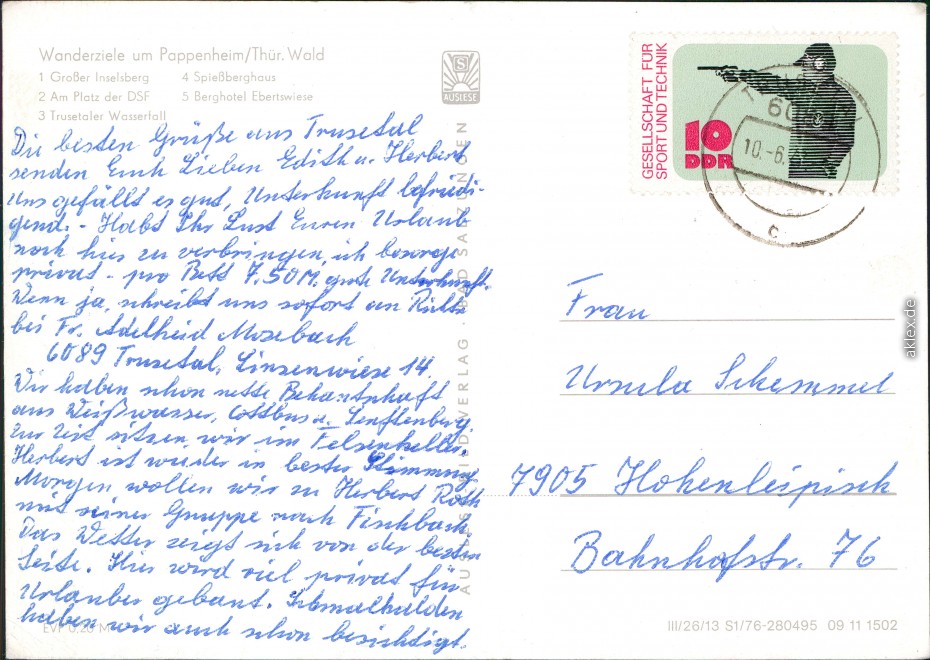 Wanderziele um Pappenheim/Thür. Wald
1 Großer Inselsberg 4 Spießberghaus
2 Am Platz der DSF 5 Berghotel Ebertswiese
3 Trusetaler Wasserfall
AUSLESE
GESELLSCHAFT FÜR
SPORT UND TECHNIK
10
DDR
10.-6.
Die besten Grüße aus Trusetal
senden Euch Lieben Edith u. Herbert
Uns gefällt es gut, Unterkunft befriedi-
gend. - Habt Ihr Lust Euren Urlaub
noch hier zu verbringen, ich besorge
privat - pro Bett 7.50 M. gute Unterkunft.
Wenn ja, schreibt uns sofort an
bei Fr. Adelheid Mosebach
6089 Trusetal, Linsenwiese 14.
Wir haben schon nette Bekantschaft
aus Weißwasser, Cottbus u. Senftenberg.
Zur Zeit sitzen wir im Felsenkeller,
Herbert ist wieder in bester Stimmung
Morgen wollen wir zu Herbert Roth
mit seiner Gruppe nach Fischbach.
Das Wetter zeigt sich von der besten
Seite. Hier wird viel privat für
Urlauber gebaut. Schmalkalden
haben wir auch schon besichtigt.
Frau
Ursula Schemmel
7905 Hohenleipisch
Bahnhofstr. 76
III/26/13 S1/76-280495 09 11 1502
akpool.de